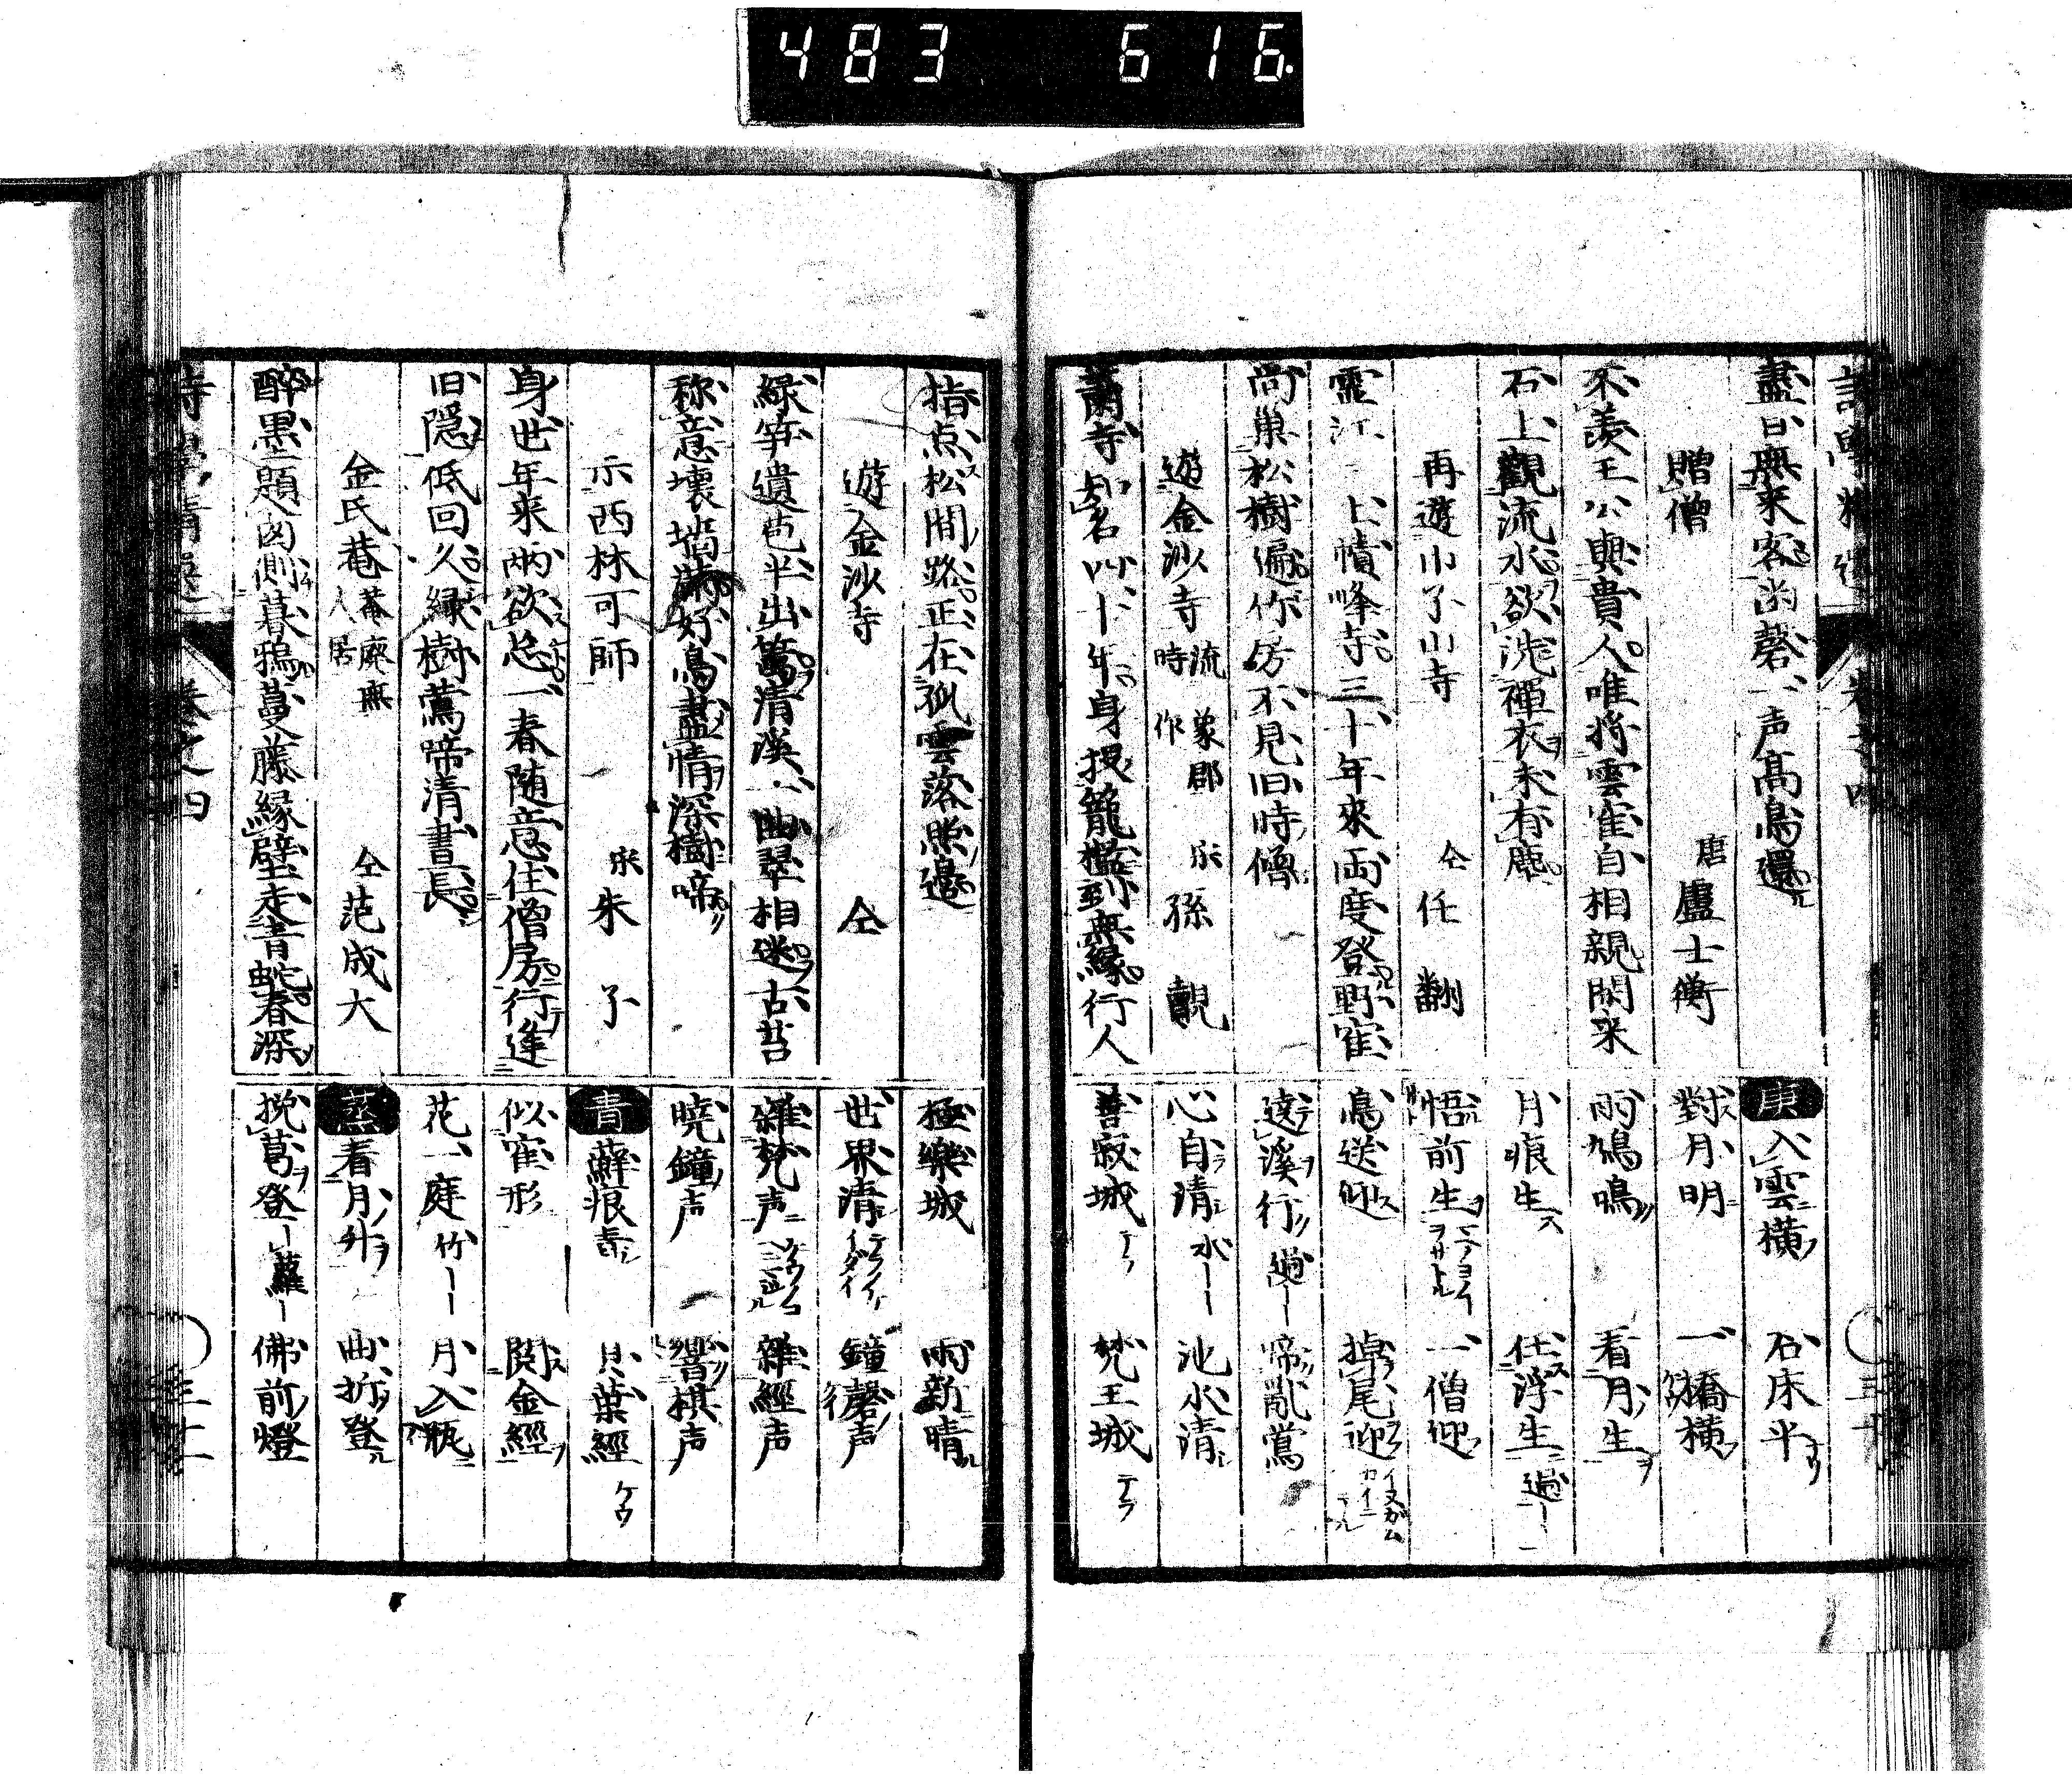 483 616.
盡日無來客幽磬一声髙鳥還
贈僧 唐 盧士衡
不羨王公與貴人唯将雲隺自相親閑来
石上觀流水欲洗禪衣未有塵
再遊巾子山寺 仝 任翻
靈江江上幘峰寺三十年來两度登野隺
尚巢松樹遍竹房不見旧時僧
遊金沙寺 流象郡時作 宋 孫覿
蕭寺知名四十年身投籠檻到無縁行人
指点松間路正在孤雲落照邊
遊金沙寺 仝
緑笋遺苞半出篱清溪一曲翠相迷古苔
称意壊墻满好鳥盡情深樹啼
示西林可師 宋 朱子
身世年来两欲忘一春随意住僧房行逢
旧隠低回久緑樹鶯啼清晝長
金氏菴 菴廃無人居 仝 范成大
醉墨題囪側暮鴉蔓藤縁壁走青蛇春深
庚 入雲横 石床平
對月明 一橋横
雨鳩鳴 看月生
月痕生 任浮生 過ー
悟前生 一僧迎
鳥送迎 掉尾迎
遶溪行 過ー 啼乱鶯
心自清 水ー 池水清
善寂城 テラ 梵王城 テラ
極樂城 雨新晴
世界清 鐘磬声
雜梵声 雜經声
曉鐘声 響棋声
青 蘚痕青 貝葉經 ケウ
似隺形 閲金經
花一庭 竹ー 月入瓶
蒸 看月升 曲折登
挽葛登 蘿ー 佛前燈
詩學精選 卷之四